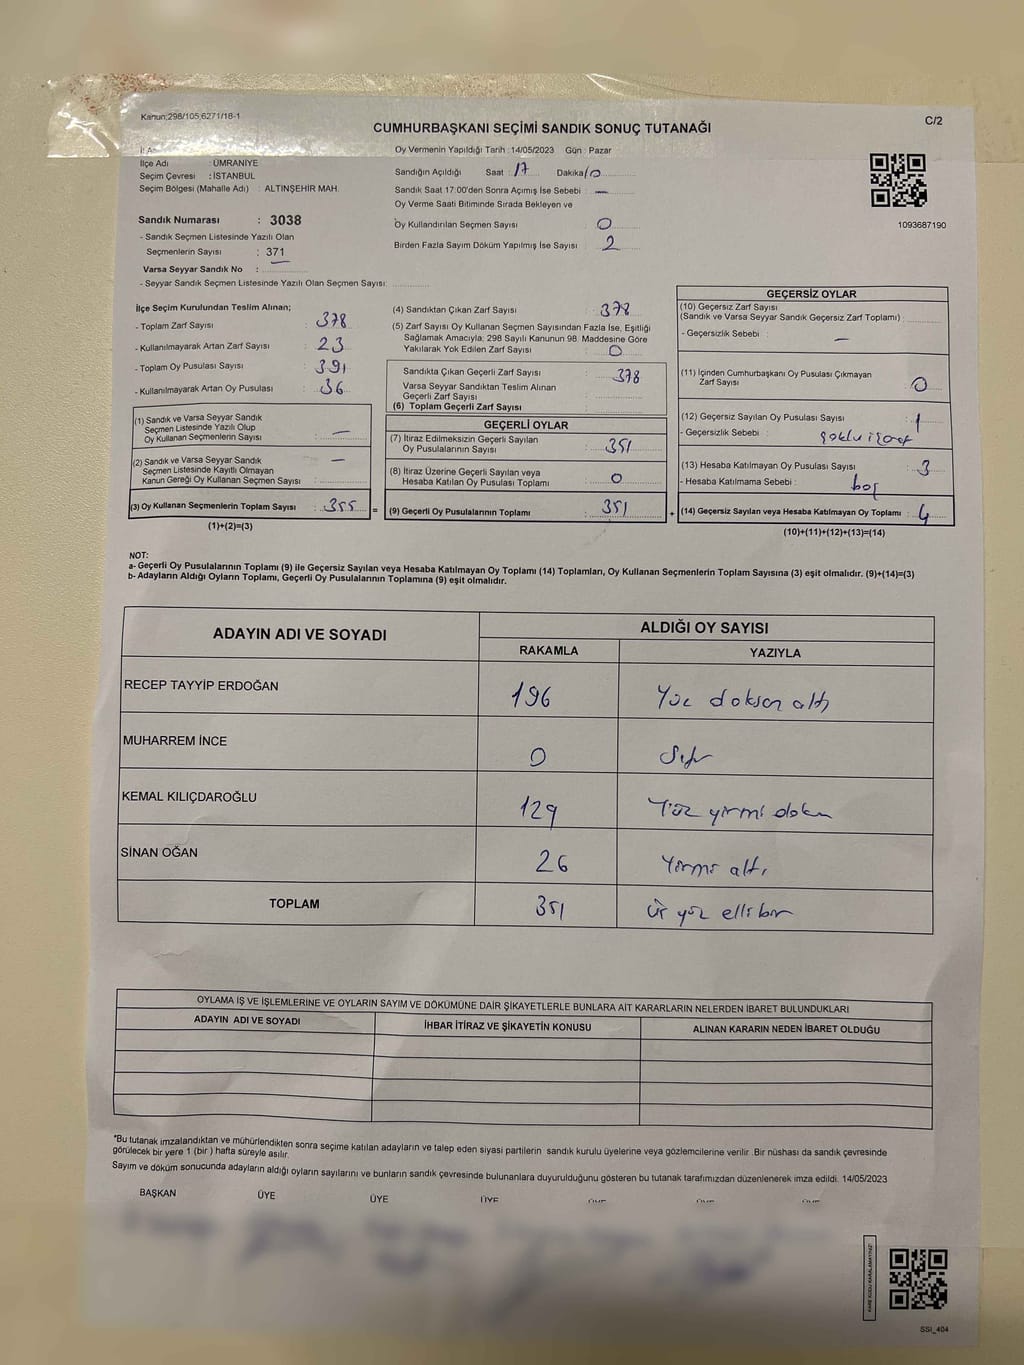 Kanun;298/105,6271/18-1
C/2
CUMHURBAŞKANI SEÇİMİ SANDIK SONUÇ TUTANAĞI
İlçe Adı : ÜMRANİYE
Seçim Çevresi : İSTANBUL
Seçim Bölgesi (Mahalle Adı) : ALTINŞEHİR MAH.
Oy Vermenin Yapıldığı Tarih : 14/05/2023 Gün : Pazar
Sandığın Açıldığı Saat : 17 Dakika 10
Sandık Saat 17:00'den Sonra Açımış İse Sebebi : —
Oy Verme Saati Bitiminde Sırada Bekleyen ve
Oy Kullandırılan Seçmen Sayısı 0
Birden Fazla Sayım Döküm Yapılmış İse Sayısı : 2
1093687190
Sandık Numarası : 3038
- Sandık Seçmen Listesinde Yazılı Olan
Seçmenlerin Sayısı : 371
Varsa Seyyar Sandık No :
- Seyyar Sandık Seçmen Listesinde Yazılı Olan Seçmen Sayısı:
İlçe Seçim Kurulundan Teslim Alınan;
- Toplam Zarf Sayısı : 378
- Kullanılmayarak Artan Zarf Sayısı : 23
- Toplam Oy Pusulası Sayısı : 391
- Kullanılmayarak Artan Oy Pusulası : 36
(1) Sandık ve Varsa Seyyar Sandık
Seçmen Listesinde Yazılı Olup
Oy Kullanan Seçmenlerin Sayısı : —
(2) Sandık ve Varsa Seyyar Sandık
Seçmen Listesinde Kayıtlı Olmayan
Kanun Gereği Oy Kullanan Seçmen Sayısı : —
(3) Oy Kullanan Seçmenlerin Toplam Sayısı : 355 =
(1)+(2)=(3)
(4) Sandıktan Çıkan Zarf Sayısı : 378
(5) Zarf Sayısı Oy Kullanan Seçmen Sayısından Fazla İse, Eşitliği
Sağlamak Amacıyla; 298 Sayılı Kanunun 98. Maddesine Göre
Yakılarak Yok Edilen Zarf Sayısı : 0
Sandıkta Çıkan Geçerli Zarf Sayısı : 378
Varsa Seyyar Sandıktan Teslim Alınan
Geçerli Zarf Sayısı :
(6) Toplam Geçerli Zarf Sayısı :
GEÇERLİ OYLAR
(7) İtiraz Edilmeksizin Geçerli Sayılan
Oy Pusulalarının Sayısı : 351
(8) İtiraz Üzerine Geçerli Sayılan veya
Hesaba Katılan Oy Pusulası Toplamı : 0
(9) Geçerli Oy Pusulalarının Toplamı : 351 +
GEÇERSİZ OYLAR
(10) Geçersiz Zarf Sayısı
(Sandık ve Varsa Seyyar Sandık Geçersiz Zarf Toplamı) :
- Geçersizlik Sebebi : —
(11) İçinden Cumhurbaşkanı Oy Pusulası Çıkmayan
Zarf Sayısı : 0
(12) Geçersiz Sayılan Oy Pusulası Sayısı : 1
- Geçersizlik Sebebi :
(13) Hesaba Katılmayan Oy Pusulası Sayısı : 3
- Hesaba Katılmama Sebebi : boş
(14) Geçersiz Sayılan veya Hesaba Katılmayan Oy Toplamı : 4
(10)+(11)+(12)+(13)=(14)
NOT:
a- Geçerli Oy Pusulalarının Toplamı (9) ile Geçersiz Sayılan veya Hesaba Katılmayan Oy Toplamı (14) Toplamları, Oy Kullanan Seçmenlerin Toplam Sayısına (3) eşit olmalıdır. (9)+(14)=(3)
b- Adayların Aldığı Oyların Toplamı, Geçerli Oy Pusulalarının Toplamına (9) eşit olmalıdır.
ADAYIN ADI VE SOYADI ALDIĞI OY SAYISI
RAKAMLA YAZIYLA
RECEP TAYYİP ERDOĞAN 196 Yüz doksan altı
MUHARREM İNCE 0 Sıfır
KEMAL KILIÇDAROĞLU 129 Yüz yirmi dokuz
SİNAN OĞAN 26 Yirmi altı
TOPLAM 351 Üç yüz elli bir
OYLAMA İŞ VE İŞLEMLERİNE VE OYLARIN SAYIM VE DÖKÜMÜNE DAİR ŞİKAYETLERLE BUNLARA AİT KARARLARIN NELERDEN İBARET BULUNDUKLARI
ADAYIN ADI VE SOYADI İHBAR İTİRAZ VE ŞİKAYETİN KONUSU ALINAN KARARIN NEDEN İBARET OLDUĞU
*Bu tutanak imzalandıktan ve mühürlendikten sonra seçime katılan adayların ve talep eden siyasi partilerin sandık kurulu üyelerine veya gözlemcilerine verilir. Bir nüshası da sandık çevresinde
görülecek bir yere 1 (bir) hafta süreyle asılır.
Sayım ve döküm sonucunda adayların aldığı oyların sayılarını ve bunların sandık çevresinde bulunanlara duyurulduğunu gösteren bu tutanak tarafımızdan düzenlenerek imza edildi. 14/05/2023
BAŞKAN ÜYE ÜYE ÜYE
SSI_404